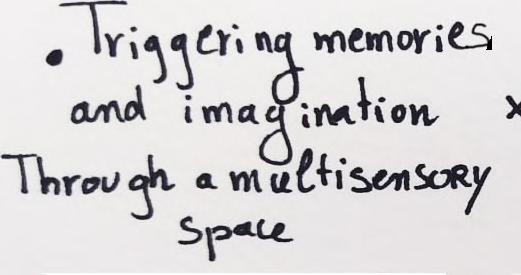 • Triggering memories
and imagination x
Through a multisensory
space